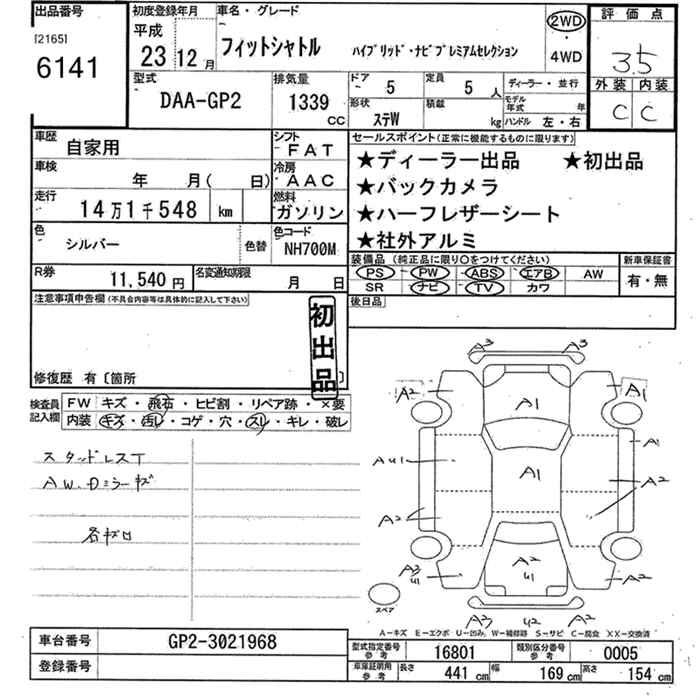 出品番号
[2165]
6141
初度登録年月
平成
23 12月
車名・グレード
フィットシャトル
ハイブリッド・ナビプレミアムセレクション
2WD
・
4WD
評価点
3.5
外装 内装
C C
型式
DAA-GP2
排気量
1339
CC
ドア
5
定員
5 人
ディーラー・並行
形状
ステW
積載
kg
モデル年式
年
ハンドル 左・右
車歴
自家用
シフト
FAT
車検
年 月( 日)
冷房
AAC
走行
14万1千548 km
燃料
ガソリン
色
シルバー
色替
色コード
NH700M
R券
11,540 円
名変通知期限
月 日
セールスポイント(正常に機能するものに限ります)
★ディーラー出品 ★初出品
★バックカメラ
★ハーフレザーシート
★社外アルミ
装備品 (純正品に限り○をつけてください)
PS PW ABS エアB AW
SR ナビ TV カワ
新車保証書
有・無
後日品
注意事項申告欄(不具合内容等は具体的に記入して下さい)
初出品
修復歴 有〔箇所 〕
検査員記入欄
FW キズ・飛石・ヒビ割・リペア跡・×要
内装 キズ・汚レ・コゲ・穴・スレ・キレ・破レ
スタッドレスT
AW.Dミラーキズ
各キロ
A3 A3
A2 A1 A1
A1
Au1 A1 A2
A2
A3 u1 A2 u1 A2
スペア
A3 u2 A2
A-キズ E-エクボ U-凹み W-補修跡 S-サビ C-腐食 XX-交換済
車台番号
GP2-3021968
登録番号
型式指定番号 参考
16801
類別区分番号 参考
0005
車庫証明用 参考
長さ 441 cm 幅 169 cm 高さ 154 cm